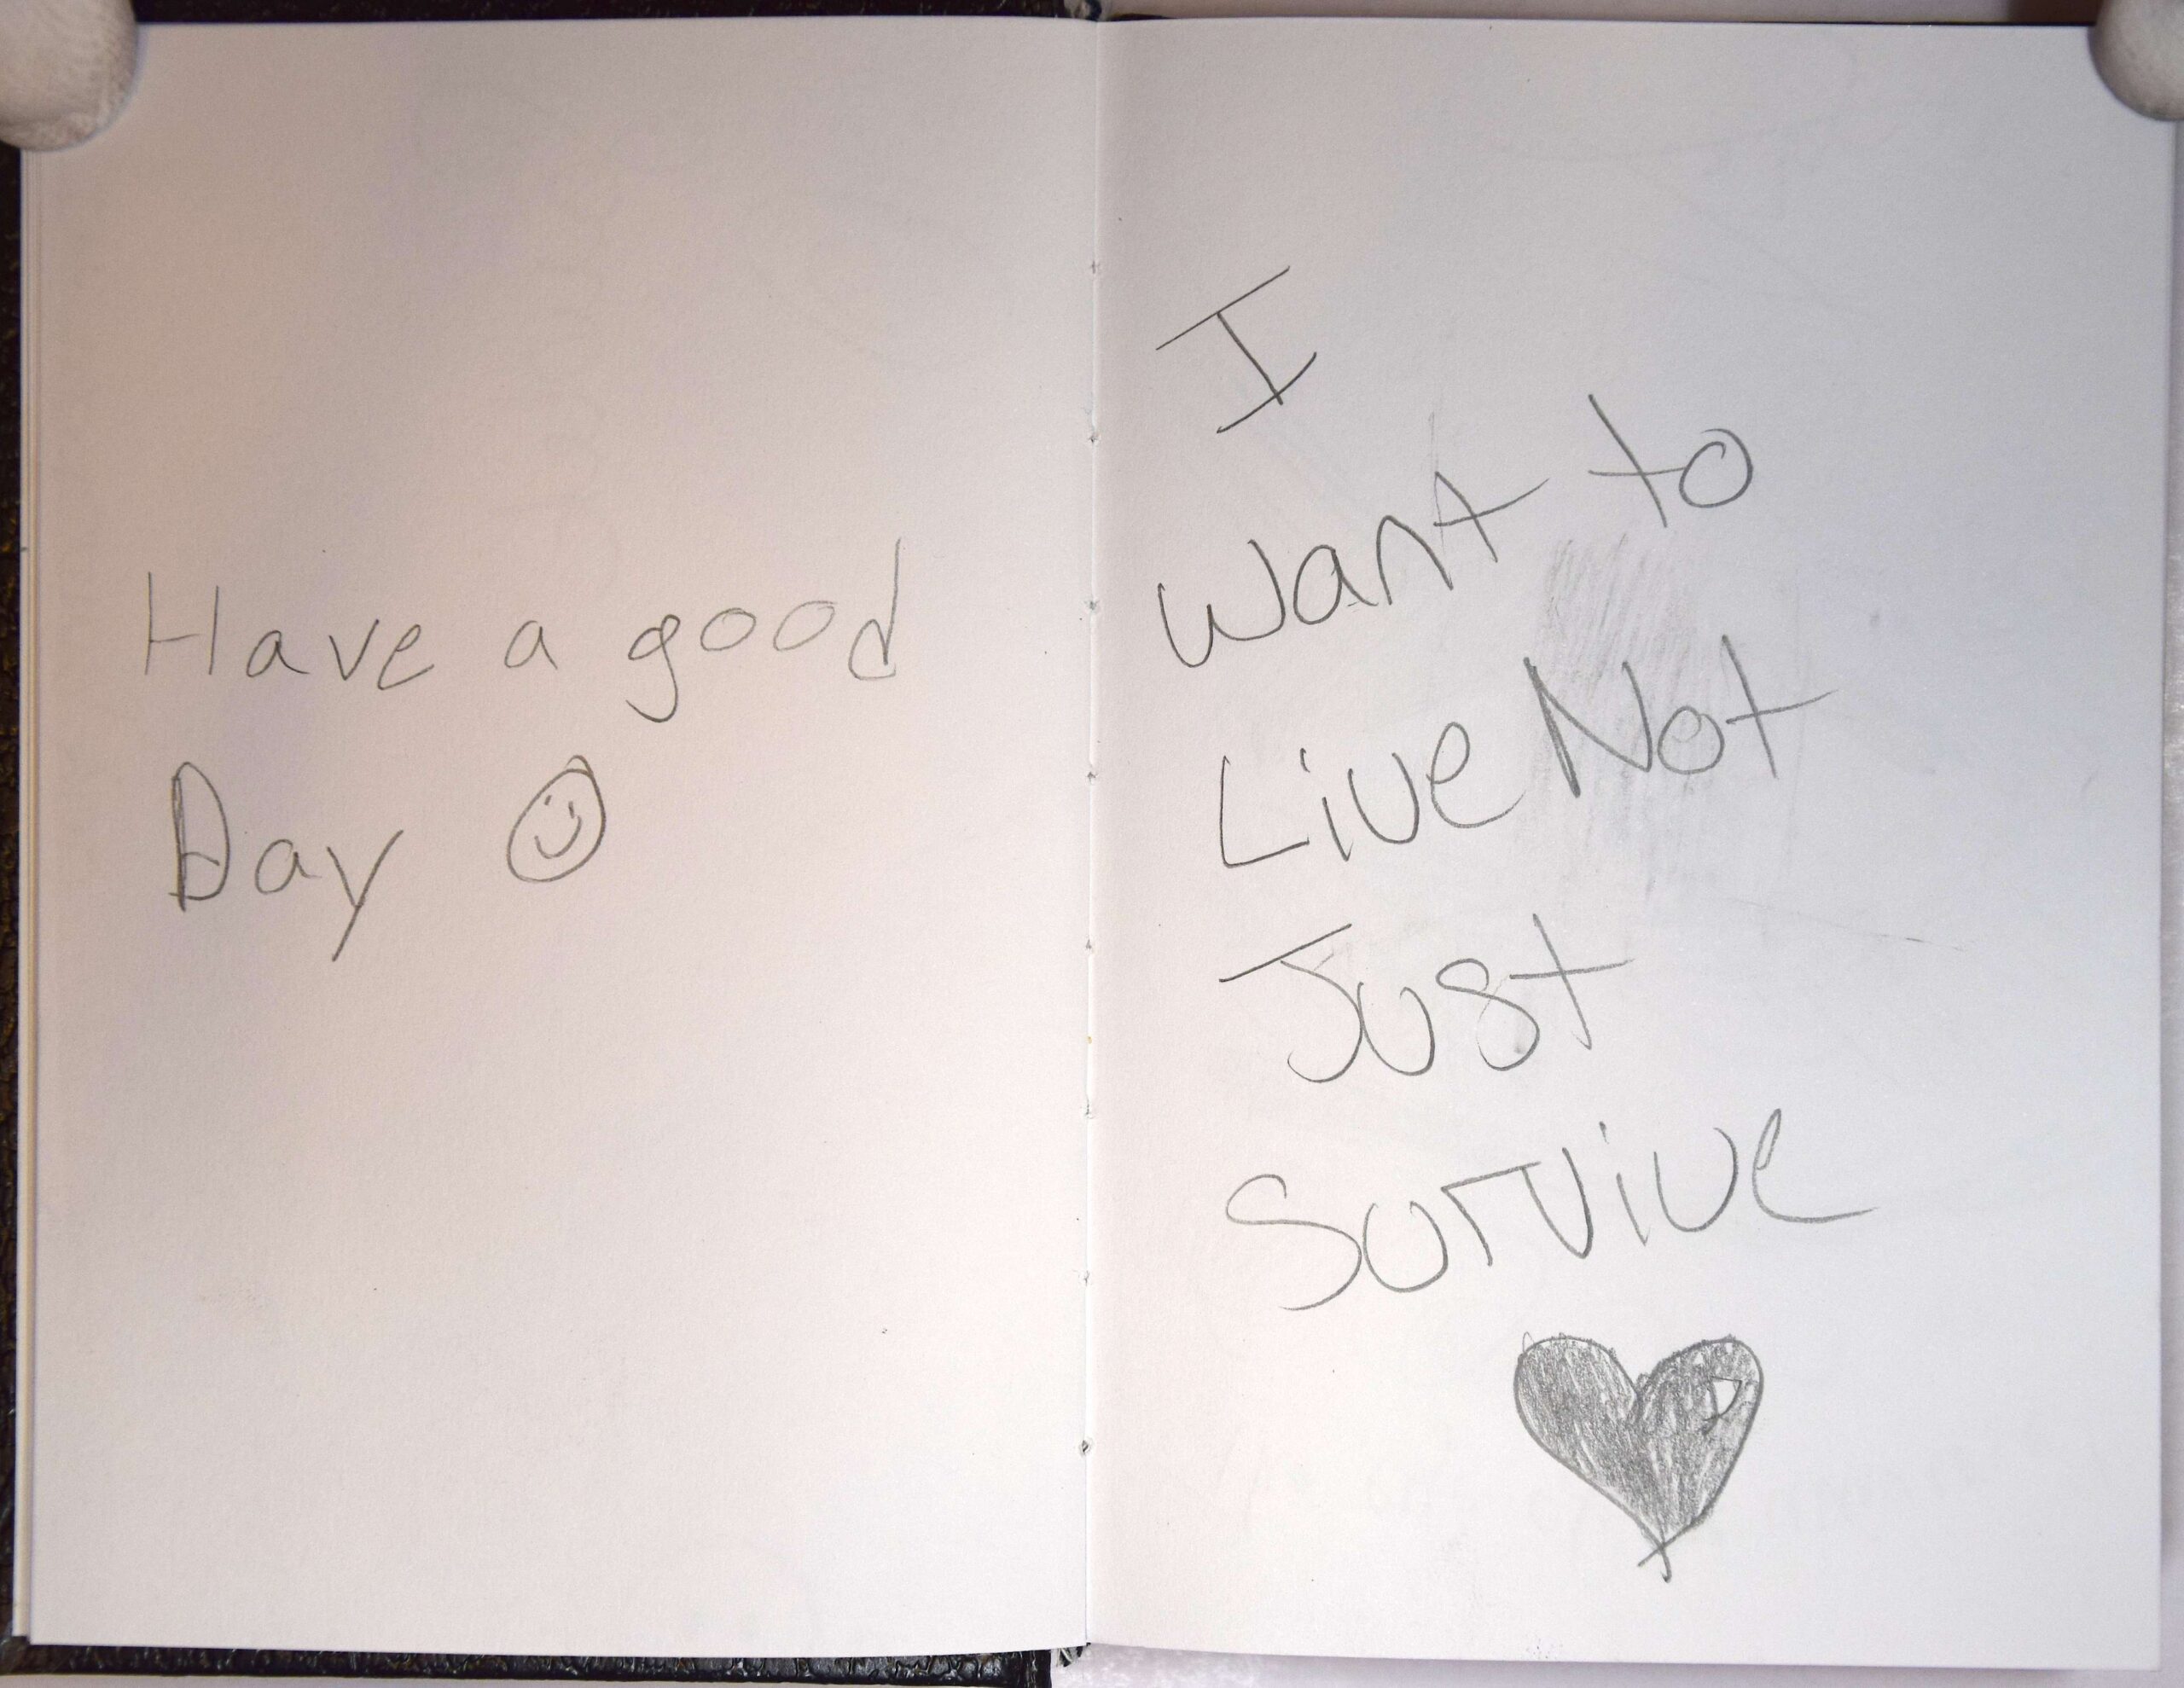 Have a good
Day
I
Want to
Live Not
Just
Survive